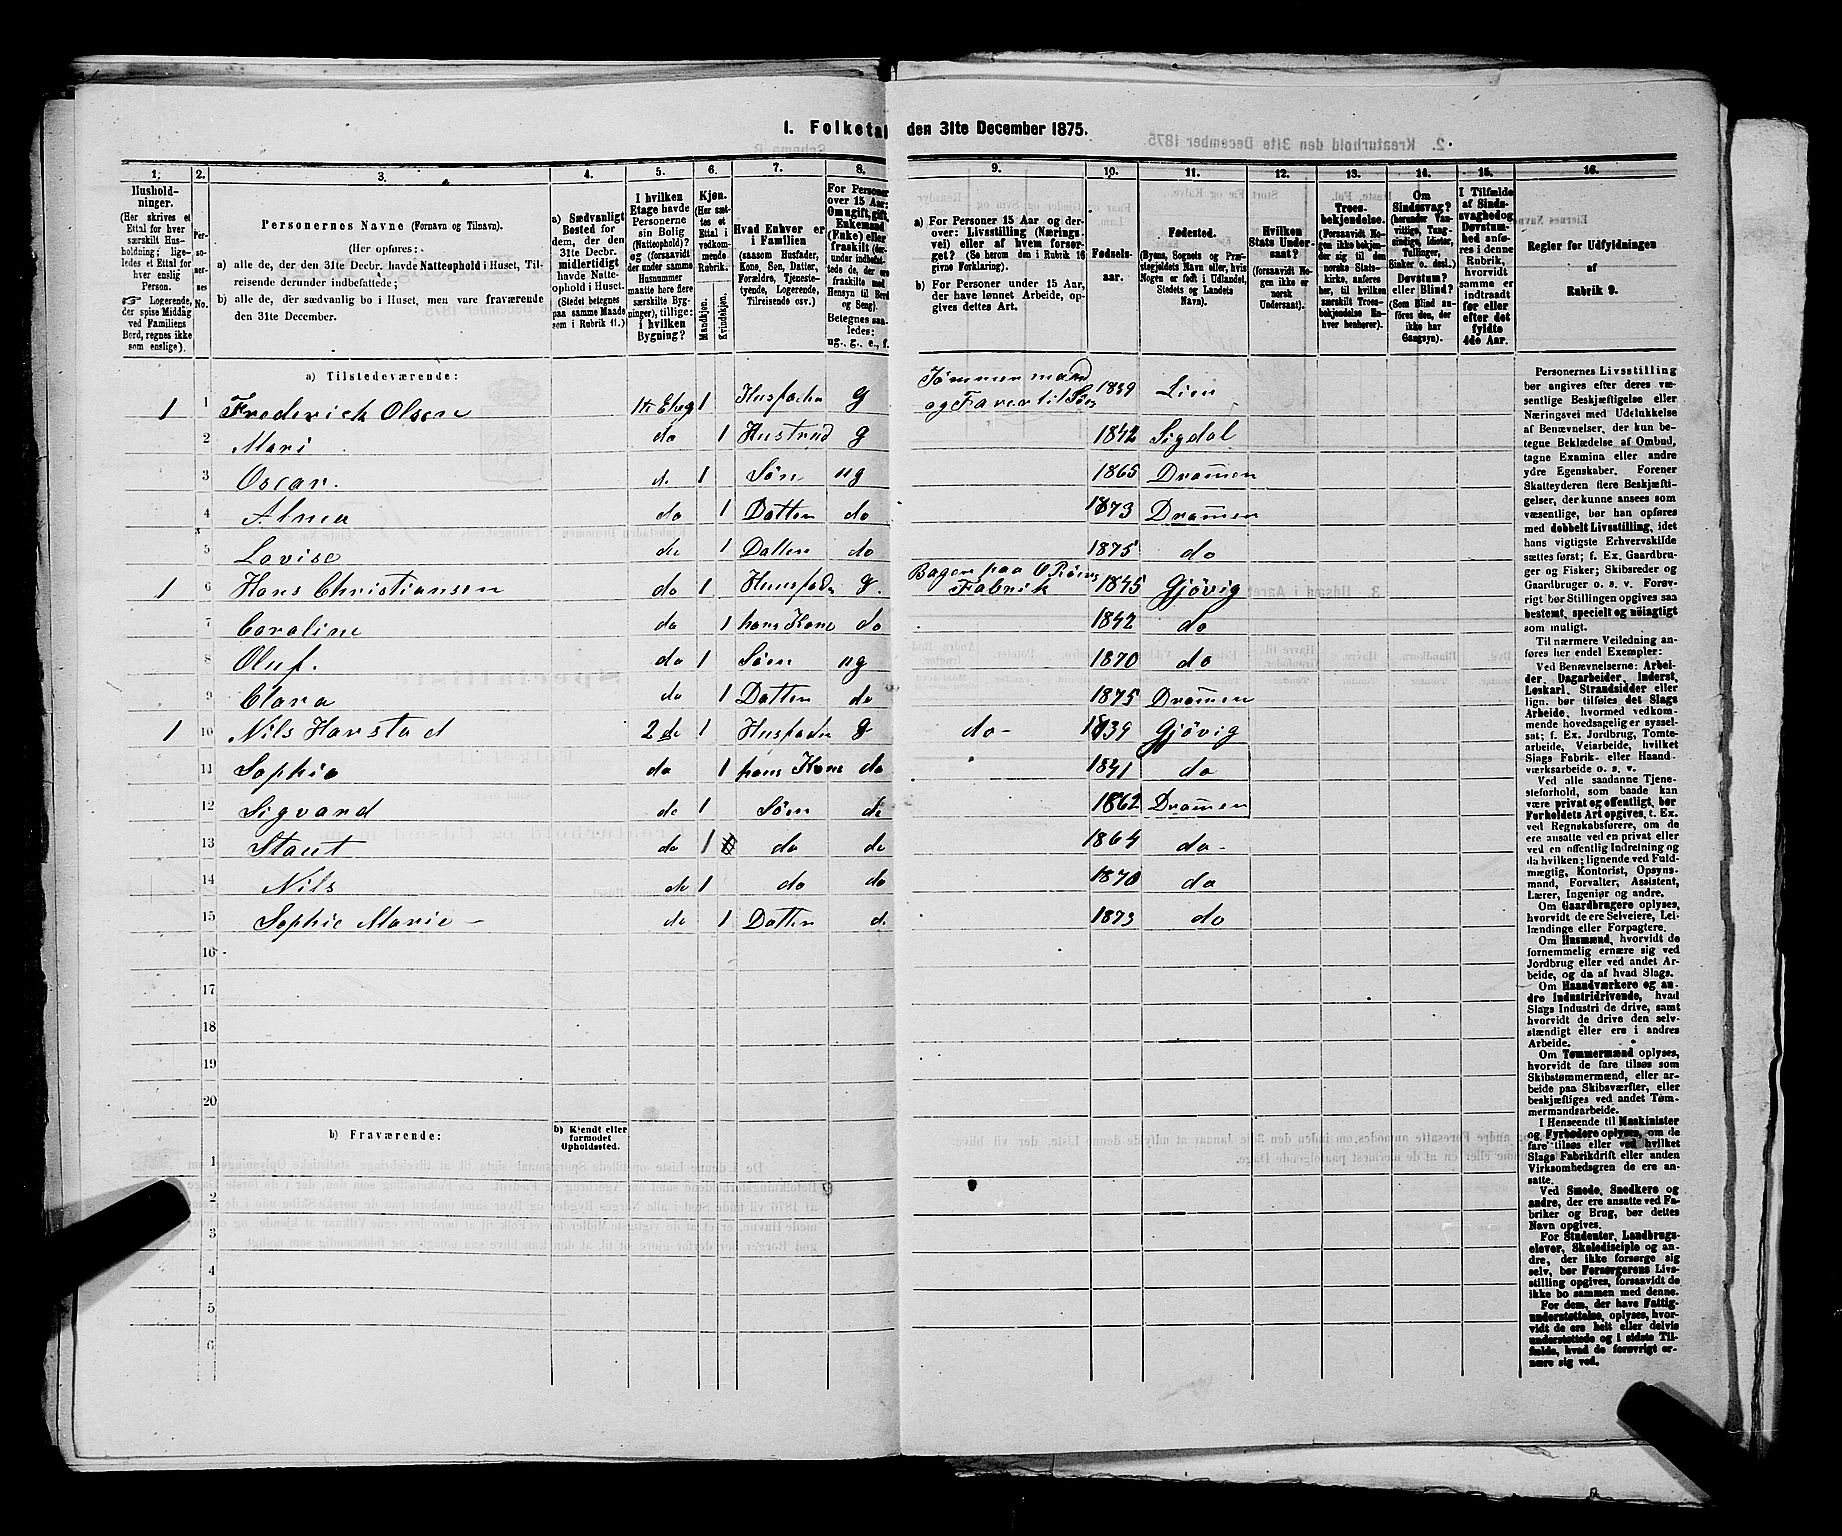 1. Folketæ den 31te December 1875.
1. 2. 3. 4. 5. 6. 7. 8. 9. 10. 11. 12. 13. 14. 15. 16.
Hushold-
ninger.
(Her skrives et
Ettal for hver
særskilt Hus-
holdning; lige-
ledes et Ettal for
hver enslig
Person.
☞ Logerende,
der spise Middag
ved Familiens
Bord, regnes ikke
som enslige).
Per-
so-
ner-
nes
No.
Personernes Navne (Fornavn og Tilnavn).
(Her opføres:
a) alle de, der den 31te Decbr. havde Natteophold i Huset, Til-
reisende derunder indbefattede;
b) alle de, der sædvanlig bo i Huset, men vare fraværende
den 31te December.
a) Sædvanligt
Bosted for
dem, der den
31te Decbr.
midlertidigt
havde Natte-
ophold i Huset.
(Stedet betegnes
paa samme Maade
som i Rubrik 11.)
I hvilken
Etage havde
Personerne
sin Bolig
(Natteophold)?
og (forsaavidt
der under samme
Husnummer
maatte høre flere
særskilte Byg-
ninger), tillige:
i hvilken
Bygning?
Kjøn.
(Her sæt-
tes et
Ettal i
vedkom-
mende
Rubrik.
Mandkjøn.
Kvindekjøn.
Hvad Enhver er
i Familien
(saasom Husfader,
Kone, Søn, Datter,
Forældre, Tjeneste-
tyende, Logerende,
Tilreisende osv.)
For Personer
over 15 Aar:
Om ugift, gift,
Enkemand
(Enke) eller
fraskilt (der-
under indbefat-
tede de, der ere
fraskilte med
Hensyn til Bord
og Seng).
Betegnes saa-
ledes:
ug., g., e., f.
a) For Personer 15 Aar og der-
over: Livsstilling (Nærings-
vei) eller af hvem forsør-
get? (Se herom den i Rubrik 16
givne Forklaring).
b) For Personer under 15 Aar,
der have lønnet Arbeide, op-
gives dettes Art.
Fødsels-
aar.
Fødested.
(Byens, Sognets og Præ-
stegjeldets Navn eller, hvis
Nogen er født i Udlandet,
Stedets og Landets
Navn).
Hvilken
Stats Under-
saat?
(forsaavidt No-
gen ikke er
norsk
Undersaat).
Troes-
bekjendelse.
(Forsaavidt No-
gen ikke bekjen-
der sig til den
norske Stats-
kirke, anføres
her, til hvilken
særskilt Troes-
bekjendelse En-
hver henhører).
Om
Sindssvag?
(herunder Van-
vittige, Tung-
sindige, Idioter,
Tullinger,
Sinker o. desl.)
Døvstum?
eller Blind?
(Som Blind an-
føres den, der
ikke har
Gangsyn).
I Tilfælde
af Sinds-
svaghed og
Døvstum-
hed anfø-
res i denne
Rubrik,
hvorvidt
samme er
indtraadt
før eller
efter det
fyldte
4de Aar.
Regler for Udfyldningen
af
Rubrik 9.
a) Tilstedeværende:
1 1 Frederich Olsen 1te Etag 1 Husfader g Tømmermand og Farer til Søes 1839 Lier
2 Mari do 1 Hustrud g 1842 Sigdal
3 Oscar. do 1 Søn ug 1865 Dramen
4 Alma do 1 Datter do 1873 Dramen
5 Lovise do 1 Datter do 1875 do
1 6 Hans Christiansen do 1 Huusfader g. Bager paa Fabrik 1845 Gjövig
7 Caroline do 1 hans Kone do 1842 do
8 Oluf. do 1 Søn ug 1870 do
9 Clara do 1 Datter do 1875 Dramen
1 10 Nils Harstad 2 de 1 Husfader g do- 1839 Gjövig
11 Sophie do 1 hans Kone do 1841 do
12 Sigvard do 1 Søn do 1862 Dramen
13 do 1 do do 1864 do-
14 Nils do 1 do do 1870 do
15 Sophie Marie - do 1 Datter do 1873 do
16
17
18
19
20
b) Fraværende:
b) Kjendt eller
formodet
Opholdssted.
1
2
3
4
5
6
Personernes Livsstilling
bør angives efter deres væ-
sentlige Beskjæftigelse eller
Næringsvei med Udelukkelse
af Benævnelser, der kun be-
tegne Beklædelse af Ombud,
tagne Examina eller andre
ydre Egenskaber. Forener
Skatteyderen flere Beskjæfti-
gelser, der kunne ansees som
væsentlige, bør han opføres
med dobbelt Livsstilling, idet
hans vigtigste Erhvervskilde
sættes først; f. Ex. Gaardbru-
ger og Fisker; Skibsreder og
Gaardbruger o. s. v. Forøv-
rigt bør Stillingen opgives saa
bestemt, specielt og nøiagtigt
som muligt.
Til nærmere Veiledning an-
føres her endel Exempler:
Ved Benævnelserne: Arbei-
der, Dagarbeider, Inderst,
Løskarl, Strandsidder eller
lign. bør tilføies det Slags
Arbeide, hvormed vedkom-
mende hovedsagelig er syssel-
sat; f. Ex. Jordbrug, Tomte-
arbeide, Veiarbeide, hvilket
Slags Fabrik- eller Haand-
værksarbeide o. s. v.
Ved alle saadanne Tjene-
steforhold, som baade kan
være privat og offentligt, bør
Forholdets Art opgives, t. Ex.
ved Regnskabsførere, om de
ere ansatte ved en privat eller
ved en offentlig Indretning og
da hvilken; lignende ved Fuld-
mægtig, Kontorist, Opsyns-
mand, Forvalter, Assistent,
Lærer, Ingeniør og andre.
Om Gaardbrugere oplyses,
hvorvidt de ere Selveiere, Lei-
lændinge eller Forpagtere.
Om Husmænd, hvorvidt de
fornemmelig ernære sig ved
Jordbrug eller ved andet Ar-
beide, og da af hvad Slags.
Om Haandværkere og an-
dre Industridrivende, hvad
Slags Industri de drive, samt
hvorvidt de drive den selv-
stændigt eller ere i andres
Arbeide.
Om Tømmermænd oplyses,
hvorvidt de fare tilsøs som
Skibstømmermænd, eller ar-
beide paa Skibsværfter, eller
beskjæftiges ved andet Tøm-
mermandsarbeide.
I Henseende til Maskinister
og Fyrbødere oplyses, om de
fare tilsøs eller ved hvilket
Slags Fabrikdrift eller anden
Virksomhedsgren de ere an-
satte.
Ved Smede, Snedkere og
andre, der ere ansatte ved Fa-
briker og Brug, bør dettes
Navn opgives.
For Studenter, Landbrugs-
elever, Skoledisciple og an-
dre, der ikke forsørge sig
selv, bør Forsørgerens Livs-
stilling opgives, forsaavidt de
ikke bo sammen med denne.
For dem, der have Fattig-
understøttelse, oplyses, hvor-
vidt de ere helt eller delvis
understøttede og i sidste Til-
fælde, hvad de forøvrigt er-
nære sig ved.